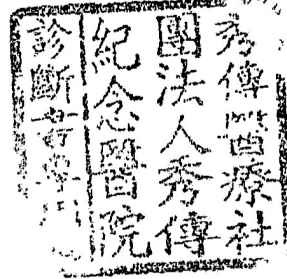 秀傳醫療社
團法人秀傳
紀念醫院
診斷書專用